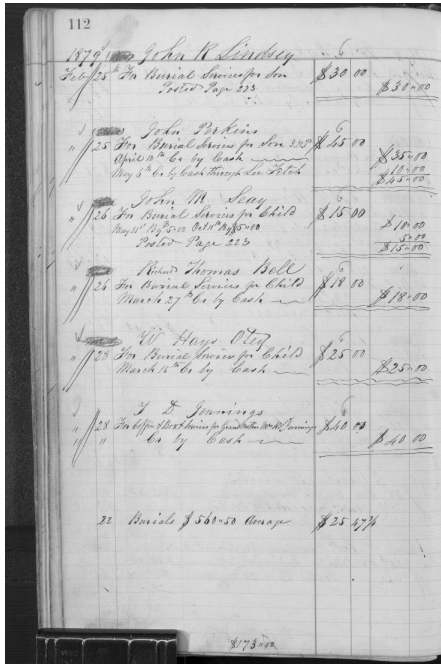 112
1879 John R Lindsey
Feb 25th For Burial Services for Son $30 00
Posted Page 223 $30 "00
John Perkins
" 25 For Burial Services for Son $45 00
April 10th Cr by Cash $35 "00
May 5th Cr by Cash through Lee Fitch 10 "00
$45 "00
John M Seay
" 26 For Burial Services for Child $15 00
May 21st By $5 "00 Oct 11th By $5 "00 $10 "00
Posted Page 223 5 "00
$15 "00
Richard Thomas Bell
" 26 For Burial Services for Child $18 00
March 27th Cr by Cash $18 "00
W Hays Otey
" 28 For Burial Services for Child $25 00
March 15th Cr by Cash $25 "00
T D Jennings
" 28 For Coffin & Box & Services for Grand Mother Jennings $40 00
" " Cr by Cash $40 00
22 Burials $560 "50 Average $25 47 3/4
$173 "00